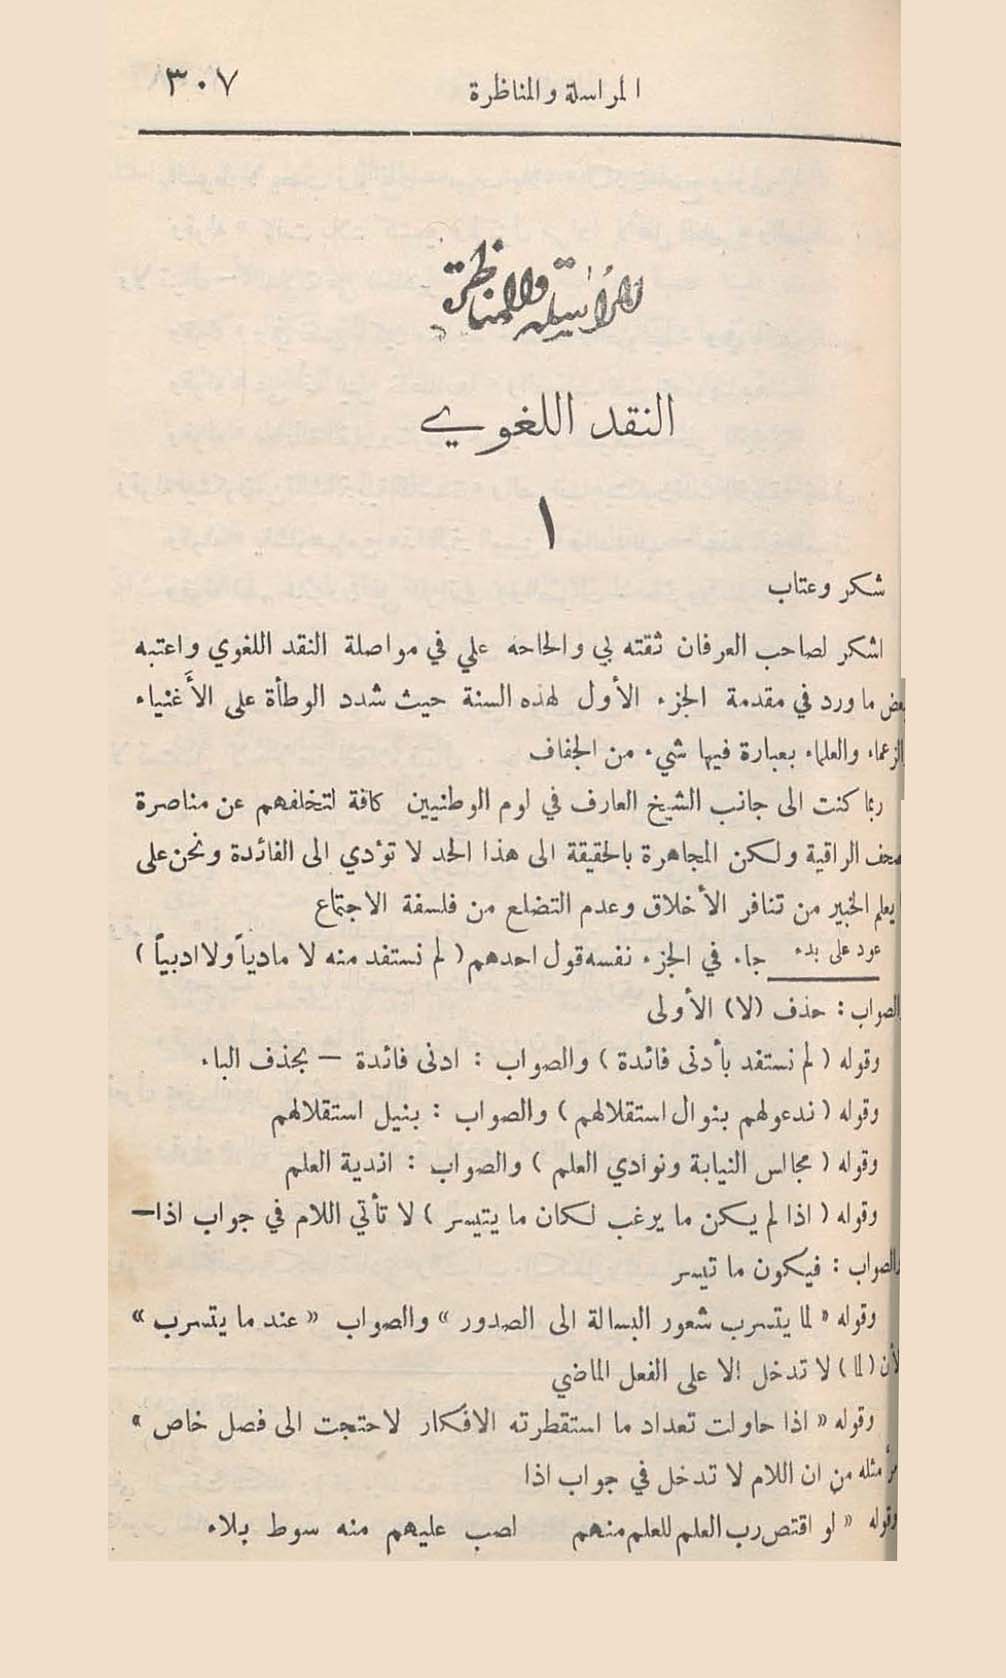 المراسلة والمناظرة ٣٠٧
المراسلة والمناظرة
النقد اللغوي
١
شكر وعتاب
اشكر لصاحب العرفان ثقته بي والحاحه علي في مواصلة النقد اللغوي واعتبه
بعض ما ورد في مقدمة الجزء الأول لهذه السنة حيث شدد الوطأة على الأغنياء
الزعماء والعلماء بعبارة فيها شيء من الجفاف
ربما كنت الى جانب الشيخ العارف في لوم الوطنيين كافة لتخلفهم عن مناصرة
صحف الراقية ولكن المجاهرة بالحقيقة الى هذا الحد لا تؤدي الى الفائدة ونحن على
يعلم الخبير من تنافر الأخلاق وعدم التضلع من فلسفة الاجتماع
عود على بدء جاء في الجزء نفسه قول احدهم (لم نستفد منه لا مادياً ولا ادبياً)
الصواب : حذف (لا) الأولى
وقوله (لم نستفد بأدنى فائدة) والصواب : ادنى فائدة – بحذف الباء
وقوله (ندعولهم بنوال استقلالهم) والصواب : بنيل استقلالهم
وقوله (مجالس النيابة ونوادي العلم) والصواب : اندية العلم
وقوله (اذا لم يكن ما يرغب لكان ما يتيسر) لا تأتي اللام في جواب اذا–
والصواب : فيكون ما تيسر
وقوله «لما يتسرب شعور البسالة الى الصدور» والصواب «عند ما يتسرب»
لأن (لما) لا تدخل الا على الفعل الماضي
وقوله «اذا حاولت تعداد ما استقطرته الافكار لاحتجت الى فصل خاص»
مرّ مثله من ان اللام لا تدخل في جواب اذا
وقوله «لو اقتص رب العلم للعلم منهم لصب عليهم منه سوط بلاء